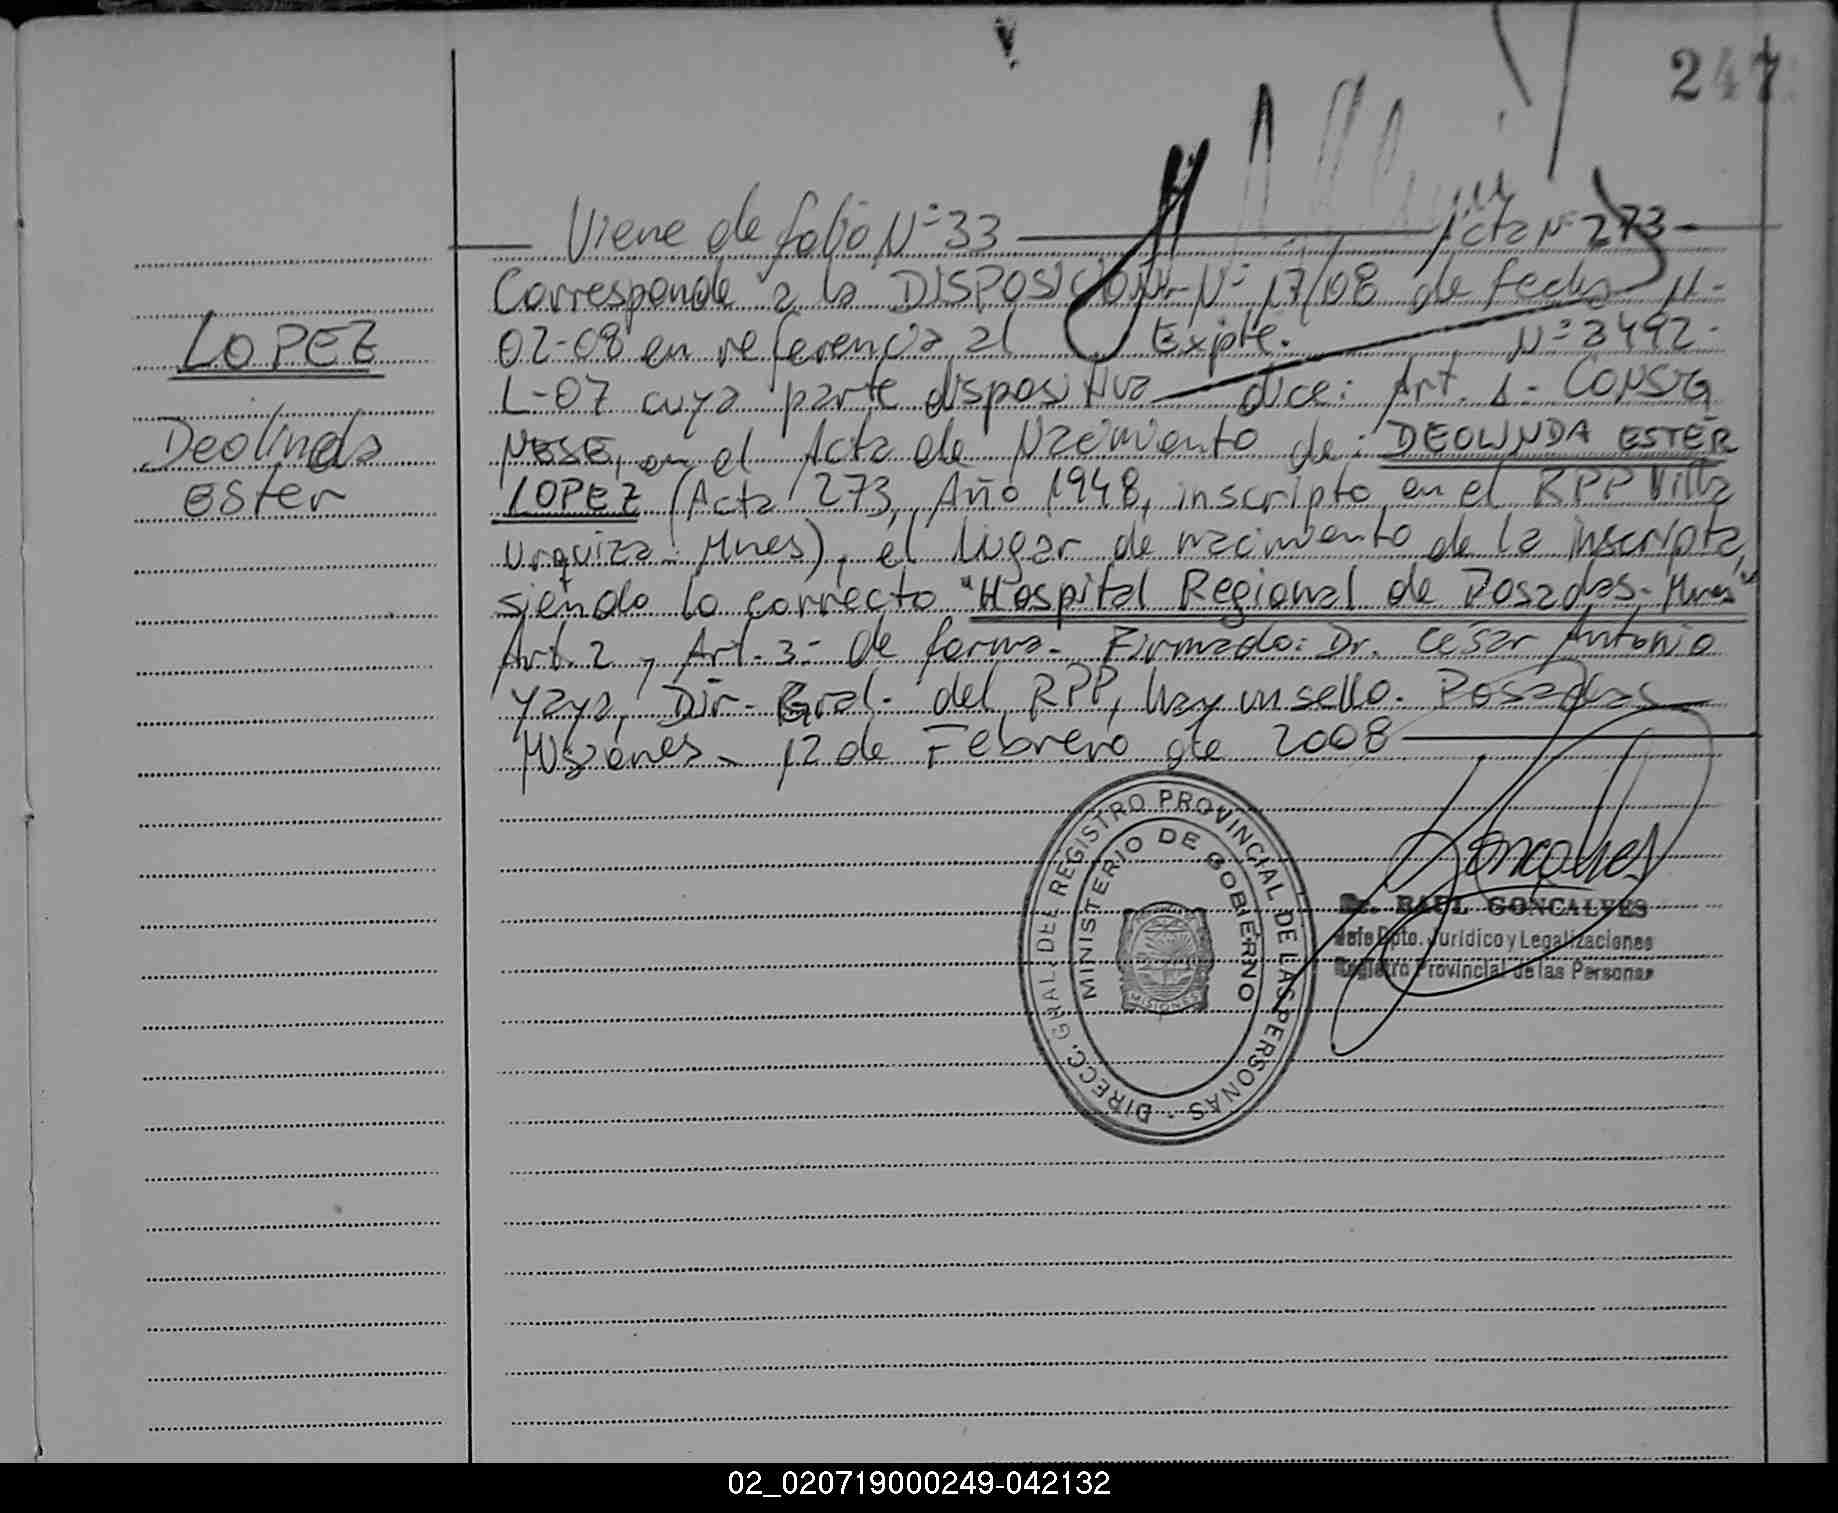 247
Viene de folio Nº 33 Acta Nº 273
Corresponde a la DISPOSICION Nº 17/08 de fecha 11-
02-08 en referencia al Expte. Nº 3492-
L-07 cuya parte dispositiva dice: Art. 1- CONSIG
NESE, en el Acta de Nacimiento de: DEOLINDA ESTER
LOPEZ (Acta 273, Año 1948, inscripto en el RPP Villa
Urquiza-Mnes), el lugar de nacimiento de la inscripta,
siendo lo correcto "Hospital Regional de Posadas-Mnes"
Art. 2 y Art. 3- de forma. Firmado: Dr. Cesar Antonio
Yaya, Dir. Gral. del RPP, hay un sello. Posadas
Misiones, 12 de Febrero de 2008
LOPEZ
Deolinda
Ester
DIRECC. GRAL. DEL REGISTRO PROVINCIAL DE LAS PERSONAS
MINISTERIO DE GOBIERNO
MISIONES
Goncalves
Dr. RAUL GONCALVES
Jefe Dpto. Jurídico y Legalizaciones
Registro Provincial de las Personas
02_020719000249-042132